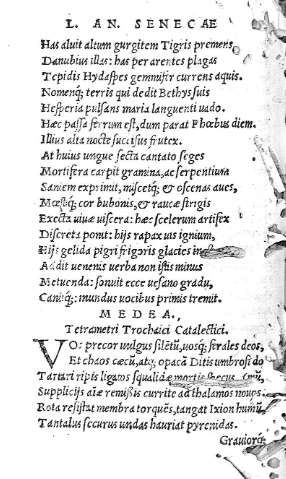 L. AN. SENECAE
Has aluit altum gurgitem Tigris premens,
Danubius illas: has per arentes plagas
Tepidis Hydaspes gemmifer currens aquis.
Nomenq; terris qui dedit Bethys suis
Hesperia pulsans maria languenti uado.
Hæc passa ferrum est, dum parat Phœbus diem.
Illius alta nocte succisus frutex.
At huius ungue secta cantato seges
Mortifera carpit gramina, ac serpentium
Saniem exprimit, miscetq; & oscenas aues,
Mœstiq; cor bubonis, & raucæ strigis
Execta uiuæ uiscera: hæc scelerum artifex
Discreta ponit: hijs rapax uis ignium,
Hijs gelida pigri frigoris glacies
Addit uenenis uerba non istis minus
Metuenda: sonuit ecce uesano gradu,
Canitq;: mundus uocibus primis tremit.
MEDEA.
Tetrametri Trochaici Catalectici.
VO precor uulgus silētū, uosq; ferales deos,
Et chaos cæcū, atq; opacā Ditis umbrosi do
Tartari ripis ligatos squalidæ mortis
Supplicijs aīæ remissis currite ad thalamos nouos.
Rota resistat membra torquēs, tangat Ixion humū,
Tantalus securus undas hauriat pyrenidas.
Grauiorq;